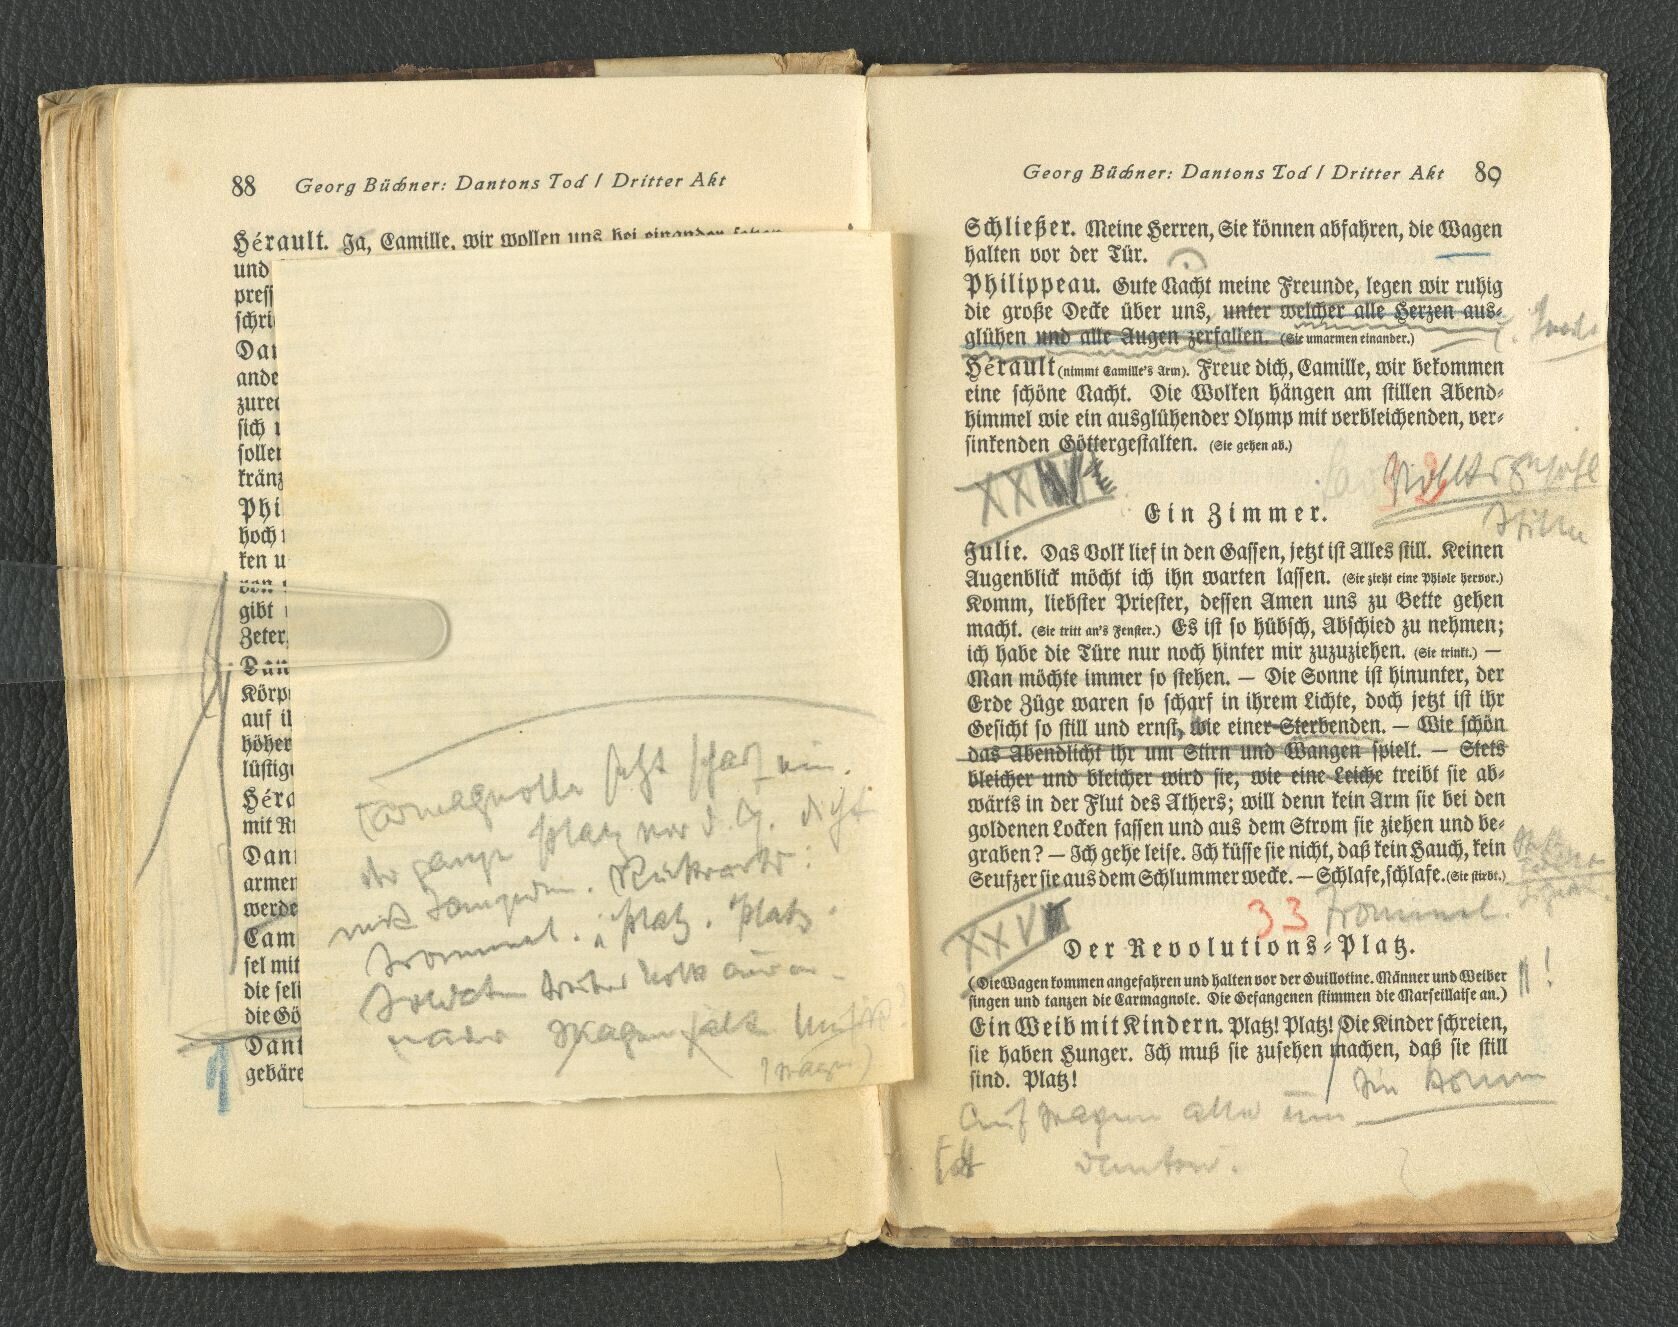 88 Georg Büchner: Dantons Tod / Dritter Akt
Hérault. Ja, Camille, wir wollen uns bei einander setzen
und
press
schri
Dan
ande
zured
sich
sollen
kränz
Phi
hoch
ken u
von
gibt
Zeter,
Dan
Körp
auf ih
höher
lüstig
Héra
mit Ri
Dant
armen
werde
Cam
sel mit
die seli
die Gö
Dant
gebäre
Carmagnolle setzt scharf ein.
der ganze Platz vor d. G. dicht
mit
Trommel. Platz. Platz.
Soldaten
Wagen
89 Georg Büchner: Dantons Tod / Dritter Akt
Schließer. Meine Herren, Sie können abfahren, die Wagen
halten vor der Tür.
Philippeau. Gute Nacht meine Freunde, legen wir ruhig
die große Decke über uns, unter welcher alle Herzen aus-
glühen und alle Augen zerfallen. (Sie umarmen einander.)
Hérault (nimmt Camille's Arm). Freue dich, Camille, wir bekommen
eine schöne Nacht. Die Wolken hängen am stillen Abend-
himmel wie ein ausglühender Olymp mit verbleichenden, ver-
sinkenden Göttergestalten. (Sie gehen ab.)
32
Stille
Ein Zimmer.
Julie. Das Volk lief in den Gassen, jetzt ist Alles still. Keinen
Augenblick möcht ich ihn warten lassen. (Sie zieht eine Phiole hervor.)
Komm, liebster Priester, dessen Amen uns zu Bette gehen
macht. (Sie tritt an's Fenster.) Es ist so hübsch, Abschied zu nehmen;
ich habe die Türe nur noch hinter mir zuzuziehen. (Sie trinkt.) —
Man möchte immer so stehen. — Die Sonne ist hinunter, der
Erde Züge waren so scharf in ihrem Lichte, doch jetzt ist ihr
Gesicht so still und ernst, wie einer Sterbenden. — Wie schön
das Abendlicht ihr um Stirn und Wangen spielt. — Stets
bleicher und bleicher wird sie, wie eine Leiche treibt sie ab-
wärts in der Flut des Äthers; will denn kein Arm sie bei den
goldenen Locken fassen und aus dem Strom sie ziehen und be-
graben? — Ich gehe leise. Ich küsse sie nicht, daß kein Hauch, kein
Seufzer sie aus dem Schlummer wecke. — Schlafe, schlafe. (Sie stirbt.)
33 Trommel.
XXVI
Der Revolutions-Platz.
(Die Wagen kommen angefahren und halten vor der Guillotine. Männer und Weiber
singen und tanzen die Carmagnole. Die Gefangenen stimmen die Marseillaise an.)
Ein Weib mit Kindern. Platz! Platz! Die Kinder schreien,
sie haben Hunger. Ich muß sie zusehen machen, daß sie still
sind. Platz!
auf Wagen alle um
Danton.